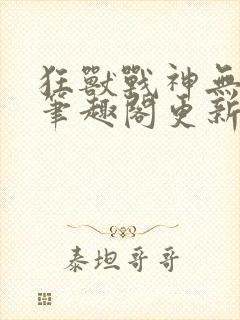 狂獸戰神無
筆趣閣更新
泰坦哥哥